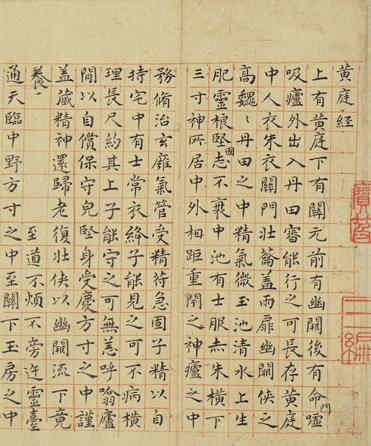 黃庭経
上有黃庭下有關元前有幽闕後有命門嘘
吸廬外出入丹田審能行之可長存黃庭
中人衣朱衣關門壯蘥蓋兩扉幽闕俠之
高魏〻丹田之中精氣微玉池清水上生
肥靈根堅志不衰中池有士服赤朱橫下
三寸神所居中外相距重閇之神廬之中
務脩治玄廱氣管受精符急固子精以自
持宅中有士常衣絳子能見之可不病橫
理長尺約其上子能守之可無恙呼噏廬
間以自償保守完堅身受慶方寸之中謹
蓋藏精神還歸老復壯俠以幽闕流下竟
至道不煩不旁迕靈臺
通天臨中野方寸之中至關下玉房之中
三編